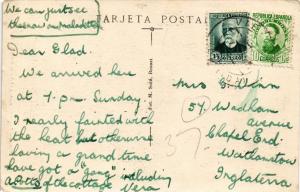 We can just see
the snow on
TARJETA POSTAL
Dear Glad.
We arrived here
at 7 p.m. Sunday.
I nearly fainted with
the heat but otherwise
having a grand time
have got a "gang" including
of the cottage Vera
Fot. M. Sold.
REPUBLICA ESPAÑOLA
15
10
Mrs G.
57 Wadham
avenue
Chapel End
Walthamstow
Inglaterra.